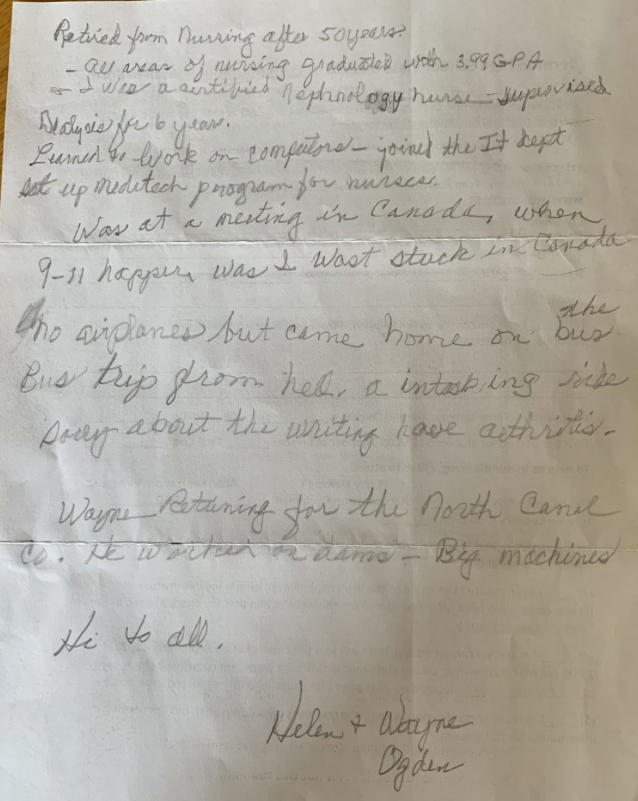 Retired from Nursing after 50 years.
- all areas of nursing graduated with 3.99 GPA
- I was a certified Nephnology nurse - supervised
Dialysis for 6 years.
Learned to work on computors - joined the It dept
set up meditech program for nurses.
Was at a meeting in Canada, when
9-11 happen, was I wast stuck in Canada
no airplanes but came home on the bus
Bus trip from hell. a ride
Sorry about the writing have arthritis -
Wayne Retiring for the North Canal
Co. He worked on dams - Big machines
Hi to all.
Helen + Wayne
Ogden